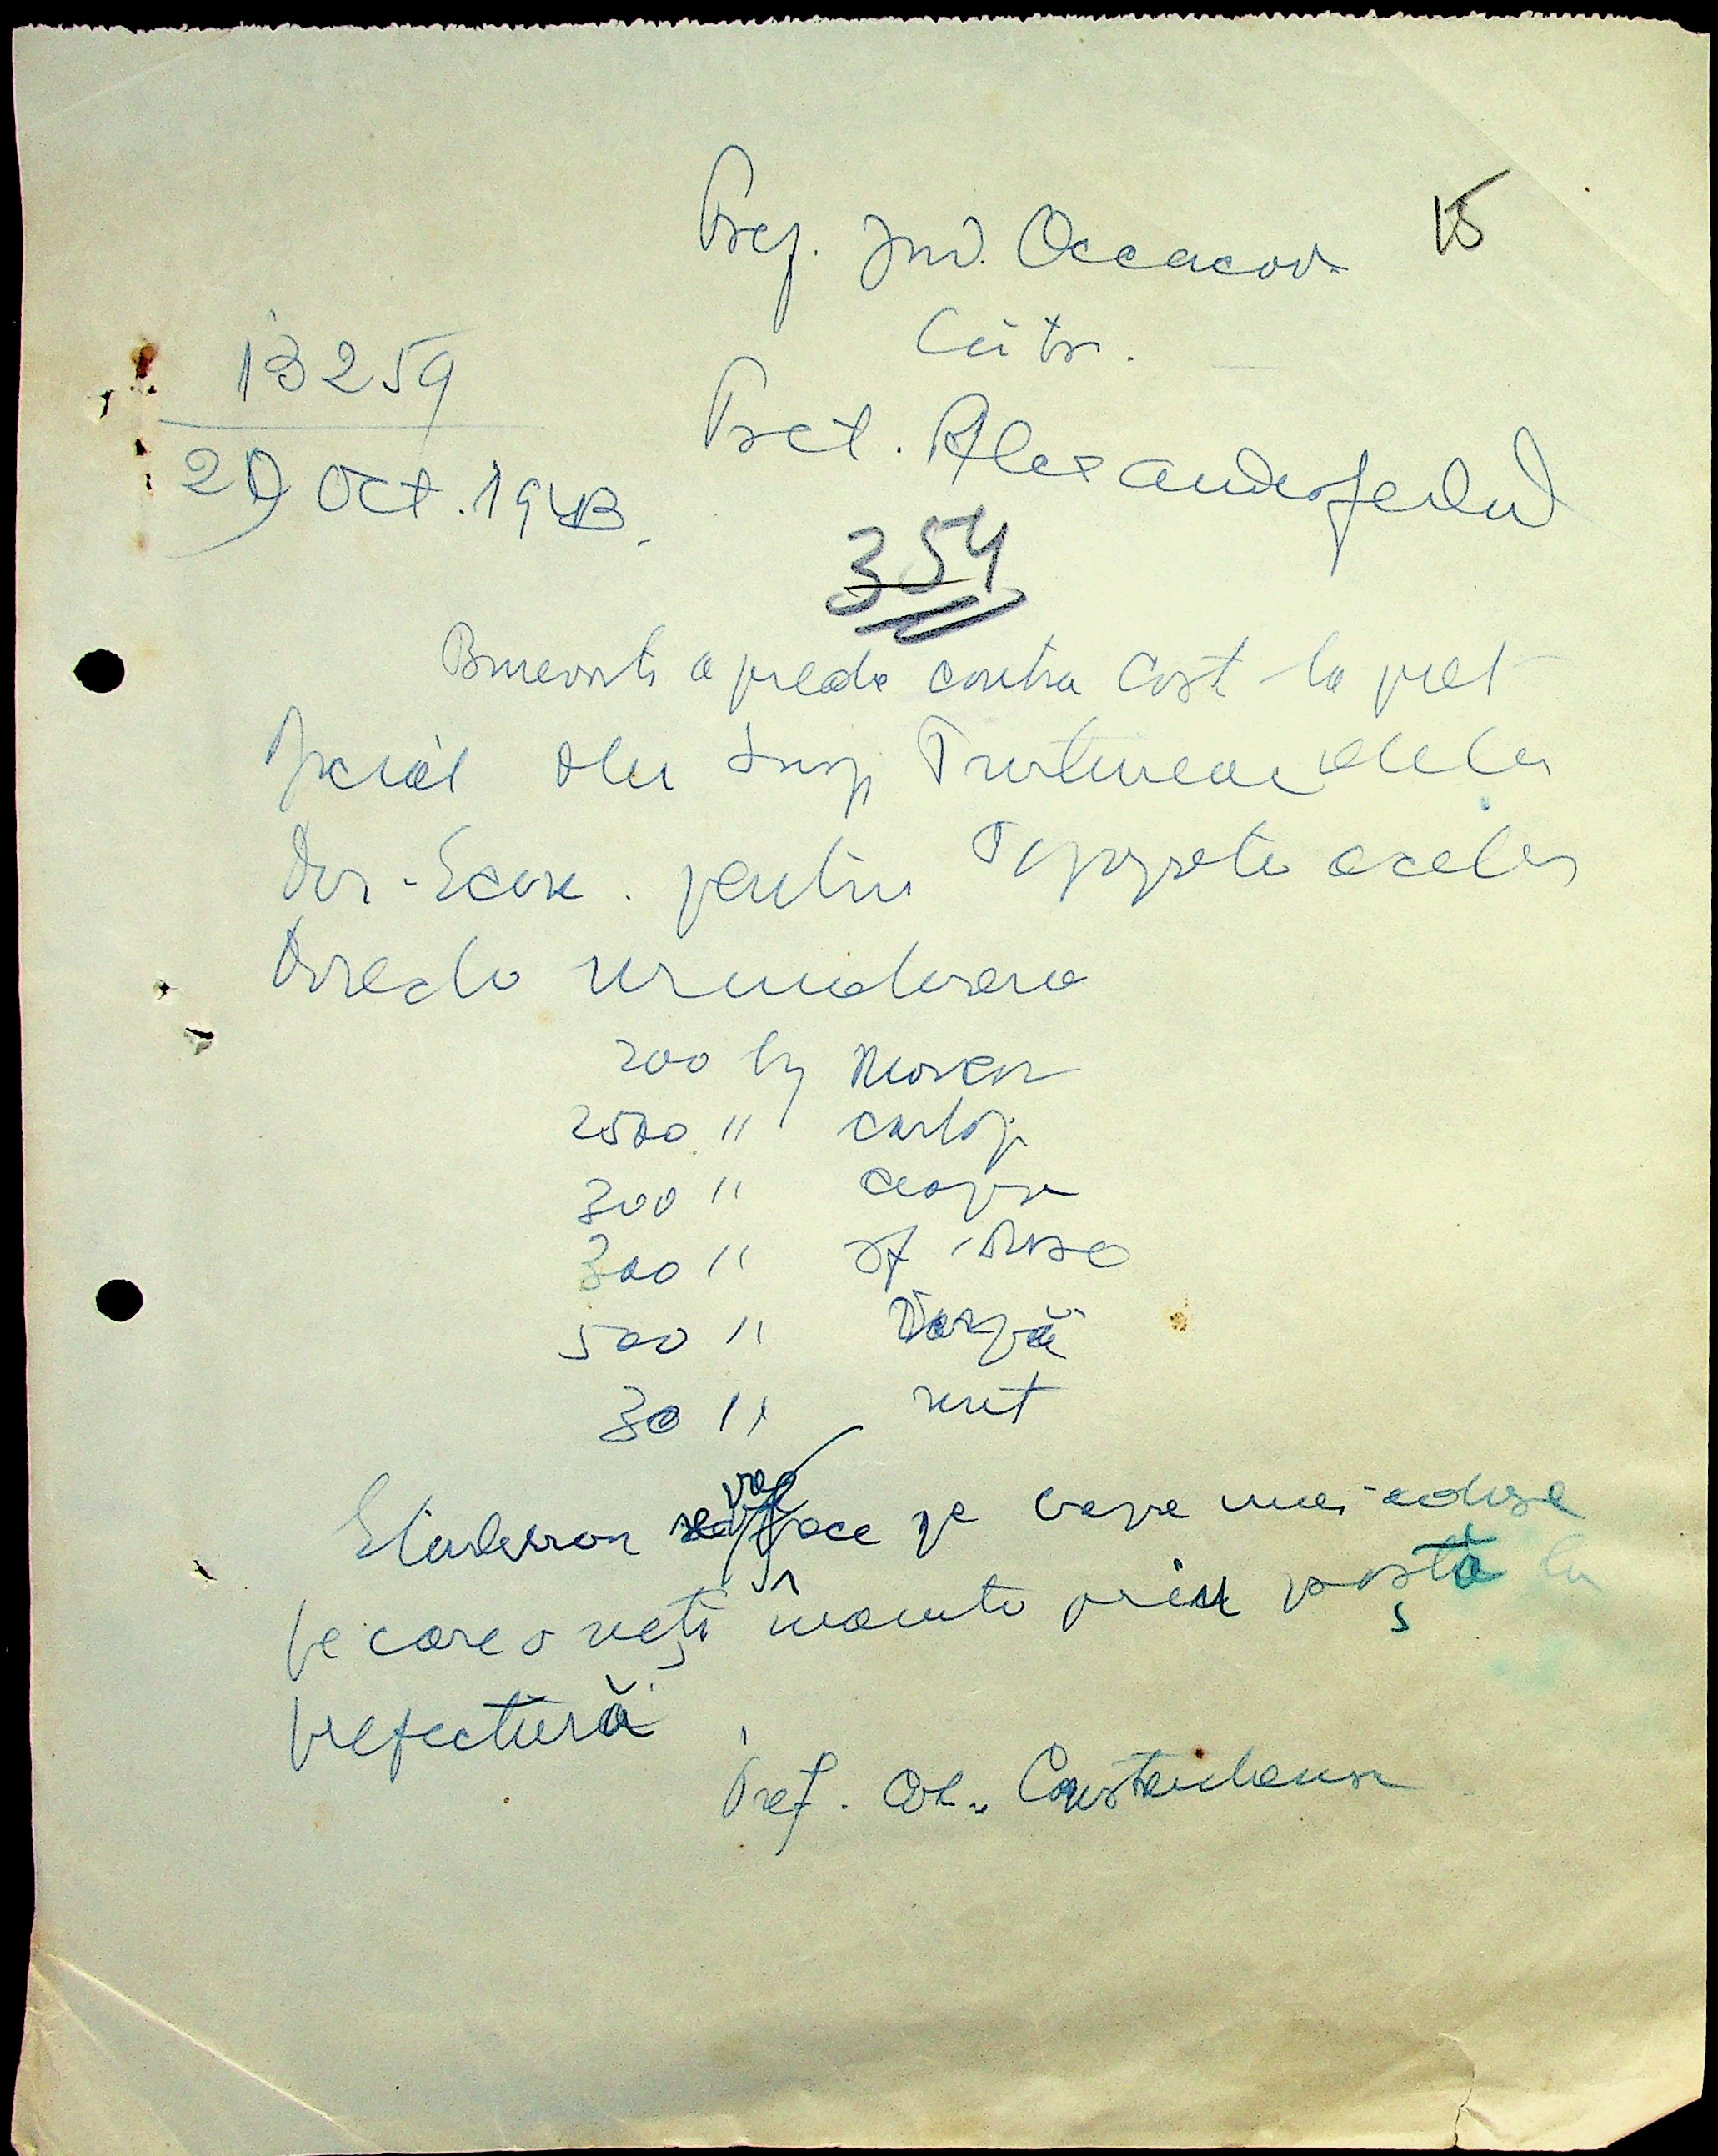 15
Pref. Jud. Oceacov
Cătr.
13259
Pret. Alexanderfeld
29 Oct. 1943.
354
Binevoiti a preda contra cost la pret
oficial Dlui Insp de la
Dir. Econ. pentru acelei
Directii urmatoarea
200 kg Morcov
2500 " cartofi
300 " ceapa
300 " sf. rosie
500 " varză
30 " unt
Eliberarea se va face pe baza unei adrese
pe care o veți inainta prin poșta la
prefectură
Pref. Col.